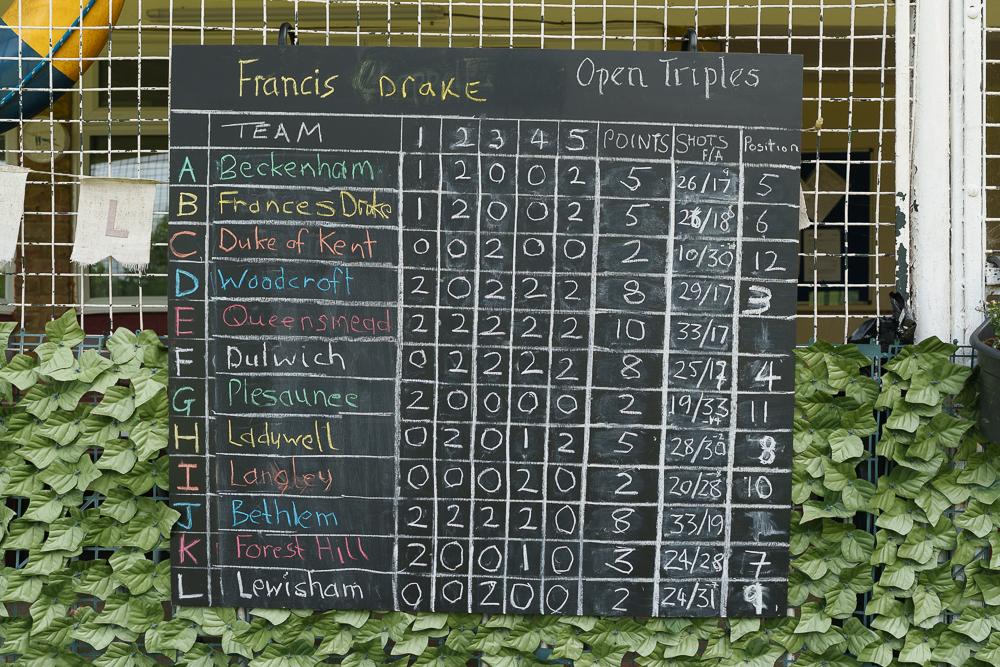 Francis DRAKE Open Triples
TEAM 1 2 3 4 5 POINTS SHOTS F/A Position
A Beckenham 1 2 0 0 2 5 26/17 9 5
B Frances Drake 1 2 0 0 2 5 26/18 8 6
C Duke of Kent 0 0 2 0 0 2 10/30 12
D Woodcroft 2 0 2 2 2 8 29/17 3
E Queensmead 2 2 2 2 2 10 33/17
F Dulwich 0 2 2 2 2 8 25/17 4
G Plesaunee 2 0 0 0 0 2 19/33 -14 11
H Ladywell 0 2 0 1 2 5 28/30 -2 8
I Langley 0 0 0 2 0 2 20/28 10
J Bethlem 2 2 2 2 0 8 33/19
K Forest Hill 2 0 0 1 0 3 24/28 7
L Lewisham 0 0 2 0 0 2 24/31 9
L